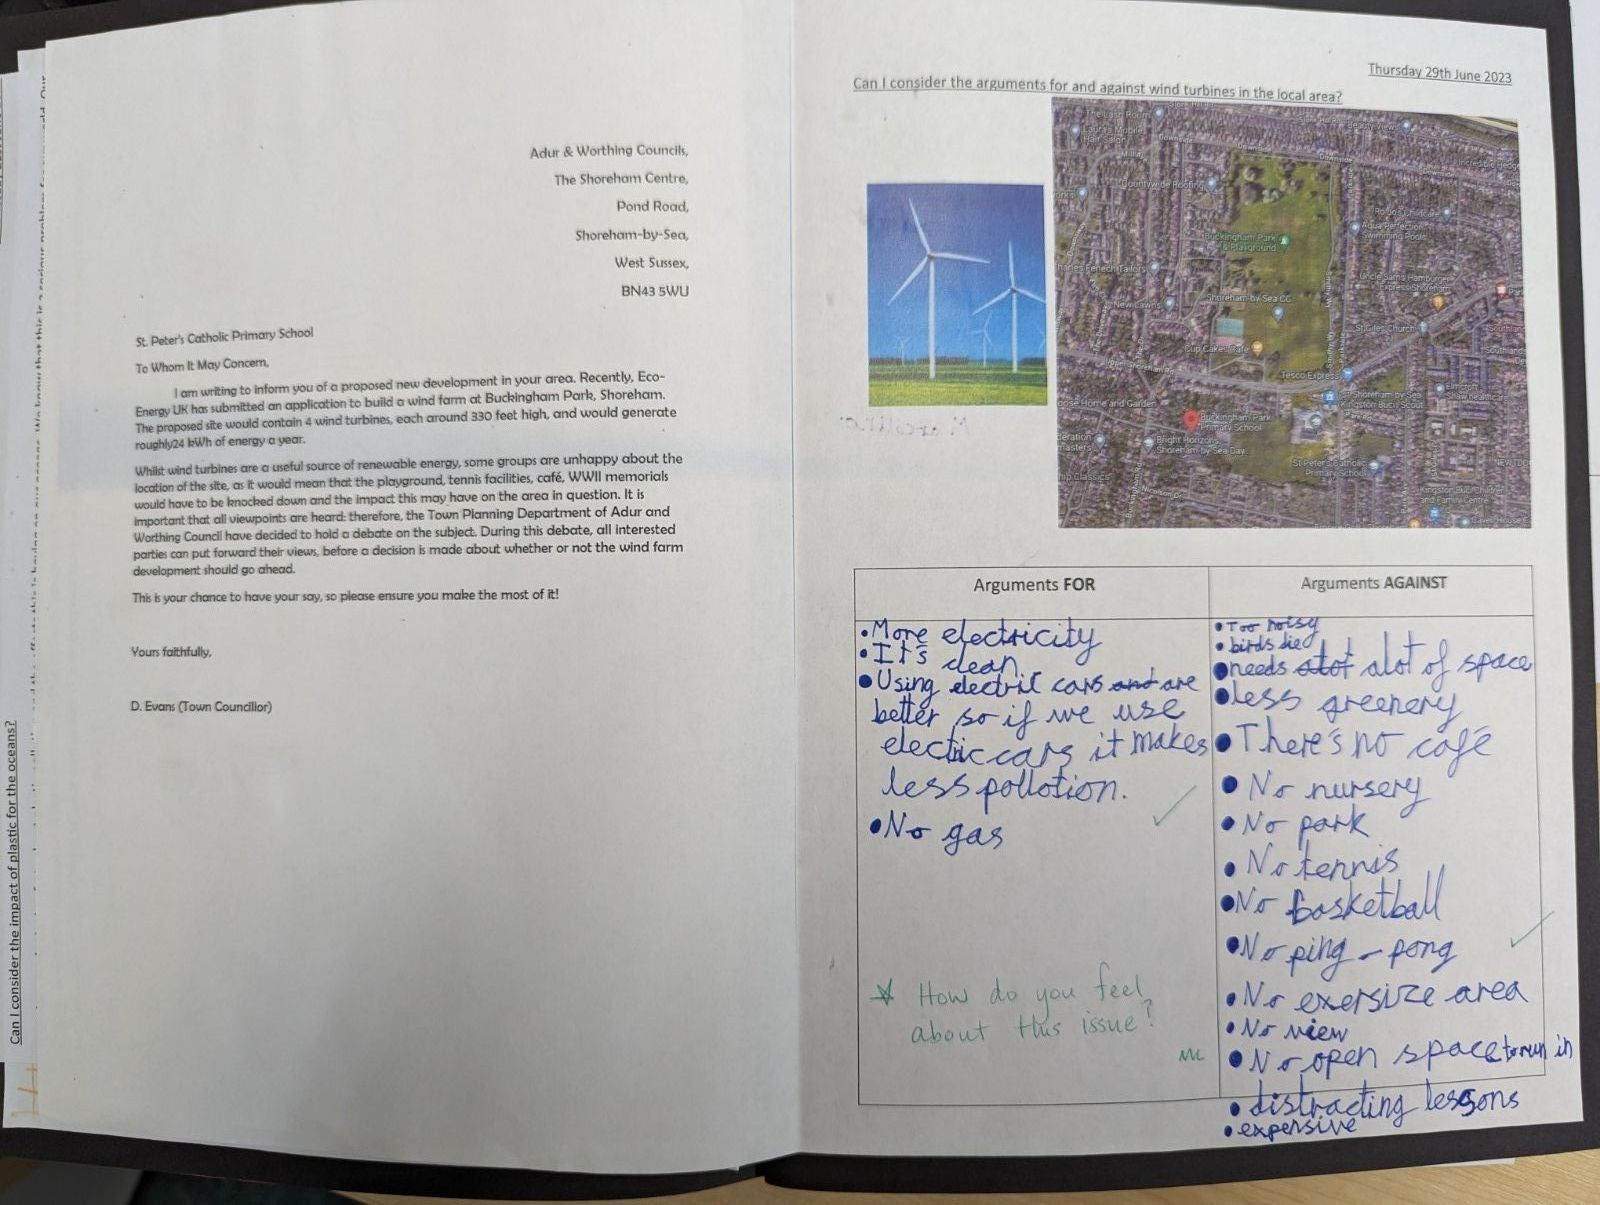 Can I consider the impact of plastic for the oceans?
Adur & Worthing Councils,
The Shoreham Centre,
Pond Road,
Shoreham-by-Sea,
West Sussex,
BN43 5WU
St. Peter's Catholic Primary School
To Whom It May Concern,
I am writing to inform you of a proposed new development in your area. Recently, Eco-
Energy UK has submitted an application to build a wind farm at Buckingham Park, Shoreham.
The proposed site would contain 4 wind turbines, each around 330 feet high, and would generate
roughly24 kWh of energy a year.
Whilst wind turbines are a useful source of renewable energy, some groups are unhappy about the
location of the site, as it would mean that the playground, tennis facilities, café, WWII memorials
would have to be knocked down and the impact this may have on the area in question. It is
important that all viewpoints are heard: therefore, the Town Planning Department of Adur and
Worthing Council have decided to hold a debate on the subject. During this debate, all interested
parties can put forward their views, before a decision is made about whether or not the wind farm
development should go ahead.
This is your chance to have your say, so please ensure you make the most of it!
Yours faithfully,
D. Evans (Town Councillor)
Thursday 29th June 2023
Can I consider the arguments for and against wind turbines in the local area?
Laura's Mobile
Hair Salon
Countywide Roofing
Buckingham Park
& Playground
Aqua Perfection
Swimming Pools
Charles Fenech Tailors
New Lawns
Shoreham-by-Sea CC
Uncle Sam's Hamburger
Express Shoreham
St Giles Church
Cup Cakes Cafe
Upper Shoreham Rd
Tesco Express
Goose Home and Garden
Buckingham Park
Primary School
Bright Horizons
Shoreham-by-Sea Day
St Peter's Catholic
Primary School
Nicolson Dr
Kingston Buci Children
and Family Centre
Arguments FOR
• More electricity
• It's clean
• Using electric cars and are
better so if we use
electric cars it makes
less pollotion.
• No gas
How do you feel
about this issue?
Arguments AGAINST
• Too noisy
• birds died
• needs alot alot of space
• less greenery
• There's no café
• No nursery
• No park
• No tennis
• No basketball
• No ping - pong
• No exersize area
• No view
• No open space to run in
• distracting lessons
• expensive